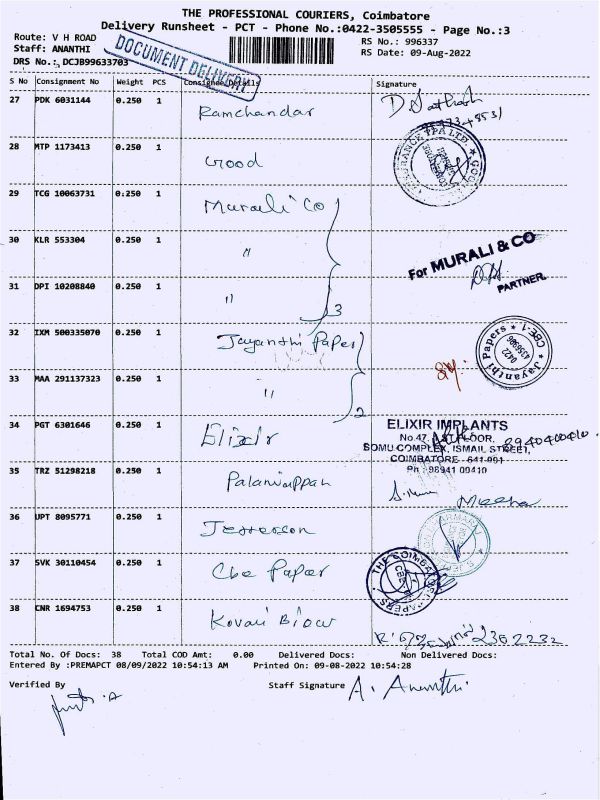 THE PROFESSIONAL COURIERS, Coimbatore
Delivery Runsheet - PCT - Phone No.:0422-3505555 - Page No.:3
Route: V H ROAD
RS No.: 996337
Staff: ANANTHI
RS Date: 09-Aug-2022
DRS No.: DCJB99633703
DOCUMENT DELIVERY
S No Consignment No Weight PCS Consignee Details Signature
27 PDK 6031144 0.250 1 Ramchandar
28 MTP 1173413 0.250 1 Good
29 TCG 10063731 0.250 1 Murali Co
30 KLR 553304 0.250 1 "
For MURALI & CO
PARTNER.
31 DPI 10208840 0.250 1 " 3
32 IXM 500335070 0.250 1 Jayanthi Paper
Jayanthi Papers * CBE-1 *
0422
4356506
33 MAA 291137323 0.250 1 " 2
34 PGT 6301646 0.250 1 Elixir
ELIXIR IMPLANTS
No.47, FLOOR,
SOMU COMPLEX, ISMAIL STREET,
COIMBATORE - 641 001
Ph : 98941 09410
35 TRZ 51298218 0.250 1 Palaniappan
Meena
36 UPT 8095771 0.250 1 Jefferson
37 SVK 30110454 0.250 1 Cbe Paper
THE COIMBATORE PAPERS
38 CNR 1694753 0.250 1 Kovai
2362232
Total No. Of Docs: 38 Total COD Amt: 0.00 Delivered Docs: Non Delivered Docs:
Entered By :PREMAPCT 08/09/2022 10:54:13 AM Printed On: 09-08-2022 10:54:28
Verified By
Staff Signature A. Ananthi